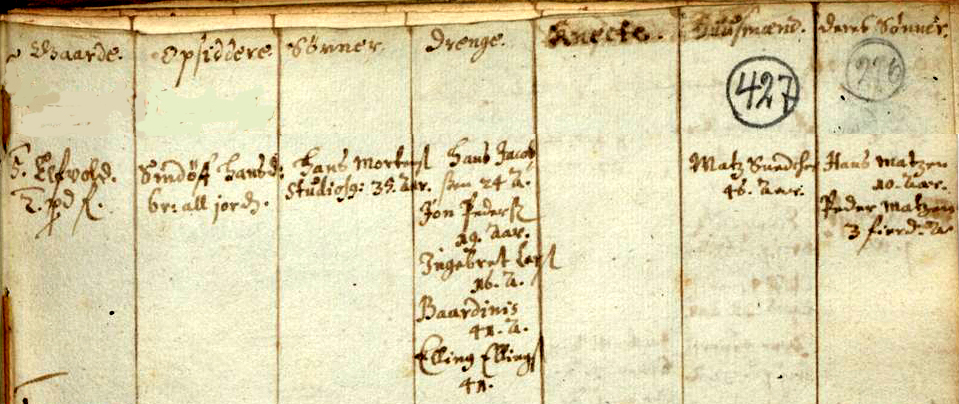 Gaarde. Opsiddere. Sønner. Drenge. Knecte. Huusmænd. deris Sønner.
427
276
H. Elfvold.
Sindøff hansd:
br: all jord.
hans Mortens
Studiosg: 35. Aar.
hans Jacob
sen 24 A.
Jon Peders
19. Aar.
Ingebret Lars
16. A.
Baardinis
41. A.
Elling Ellings
41.
Matz
46. Aar.
Hans Matzen
10. Aar.
Peder Matzen
3 fierd: A